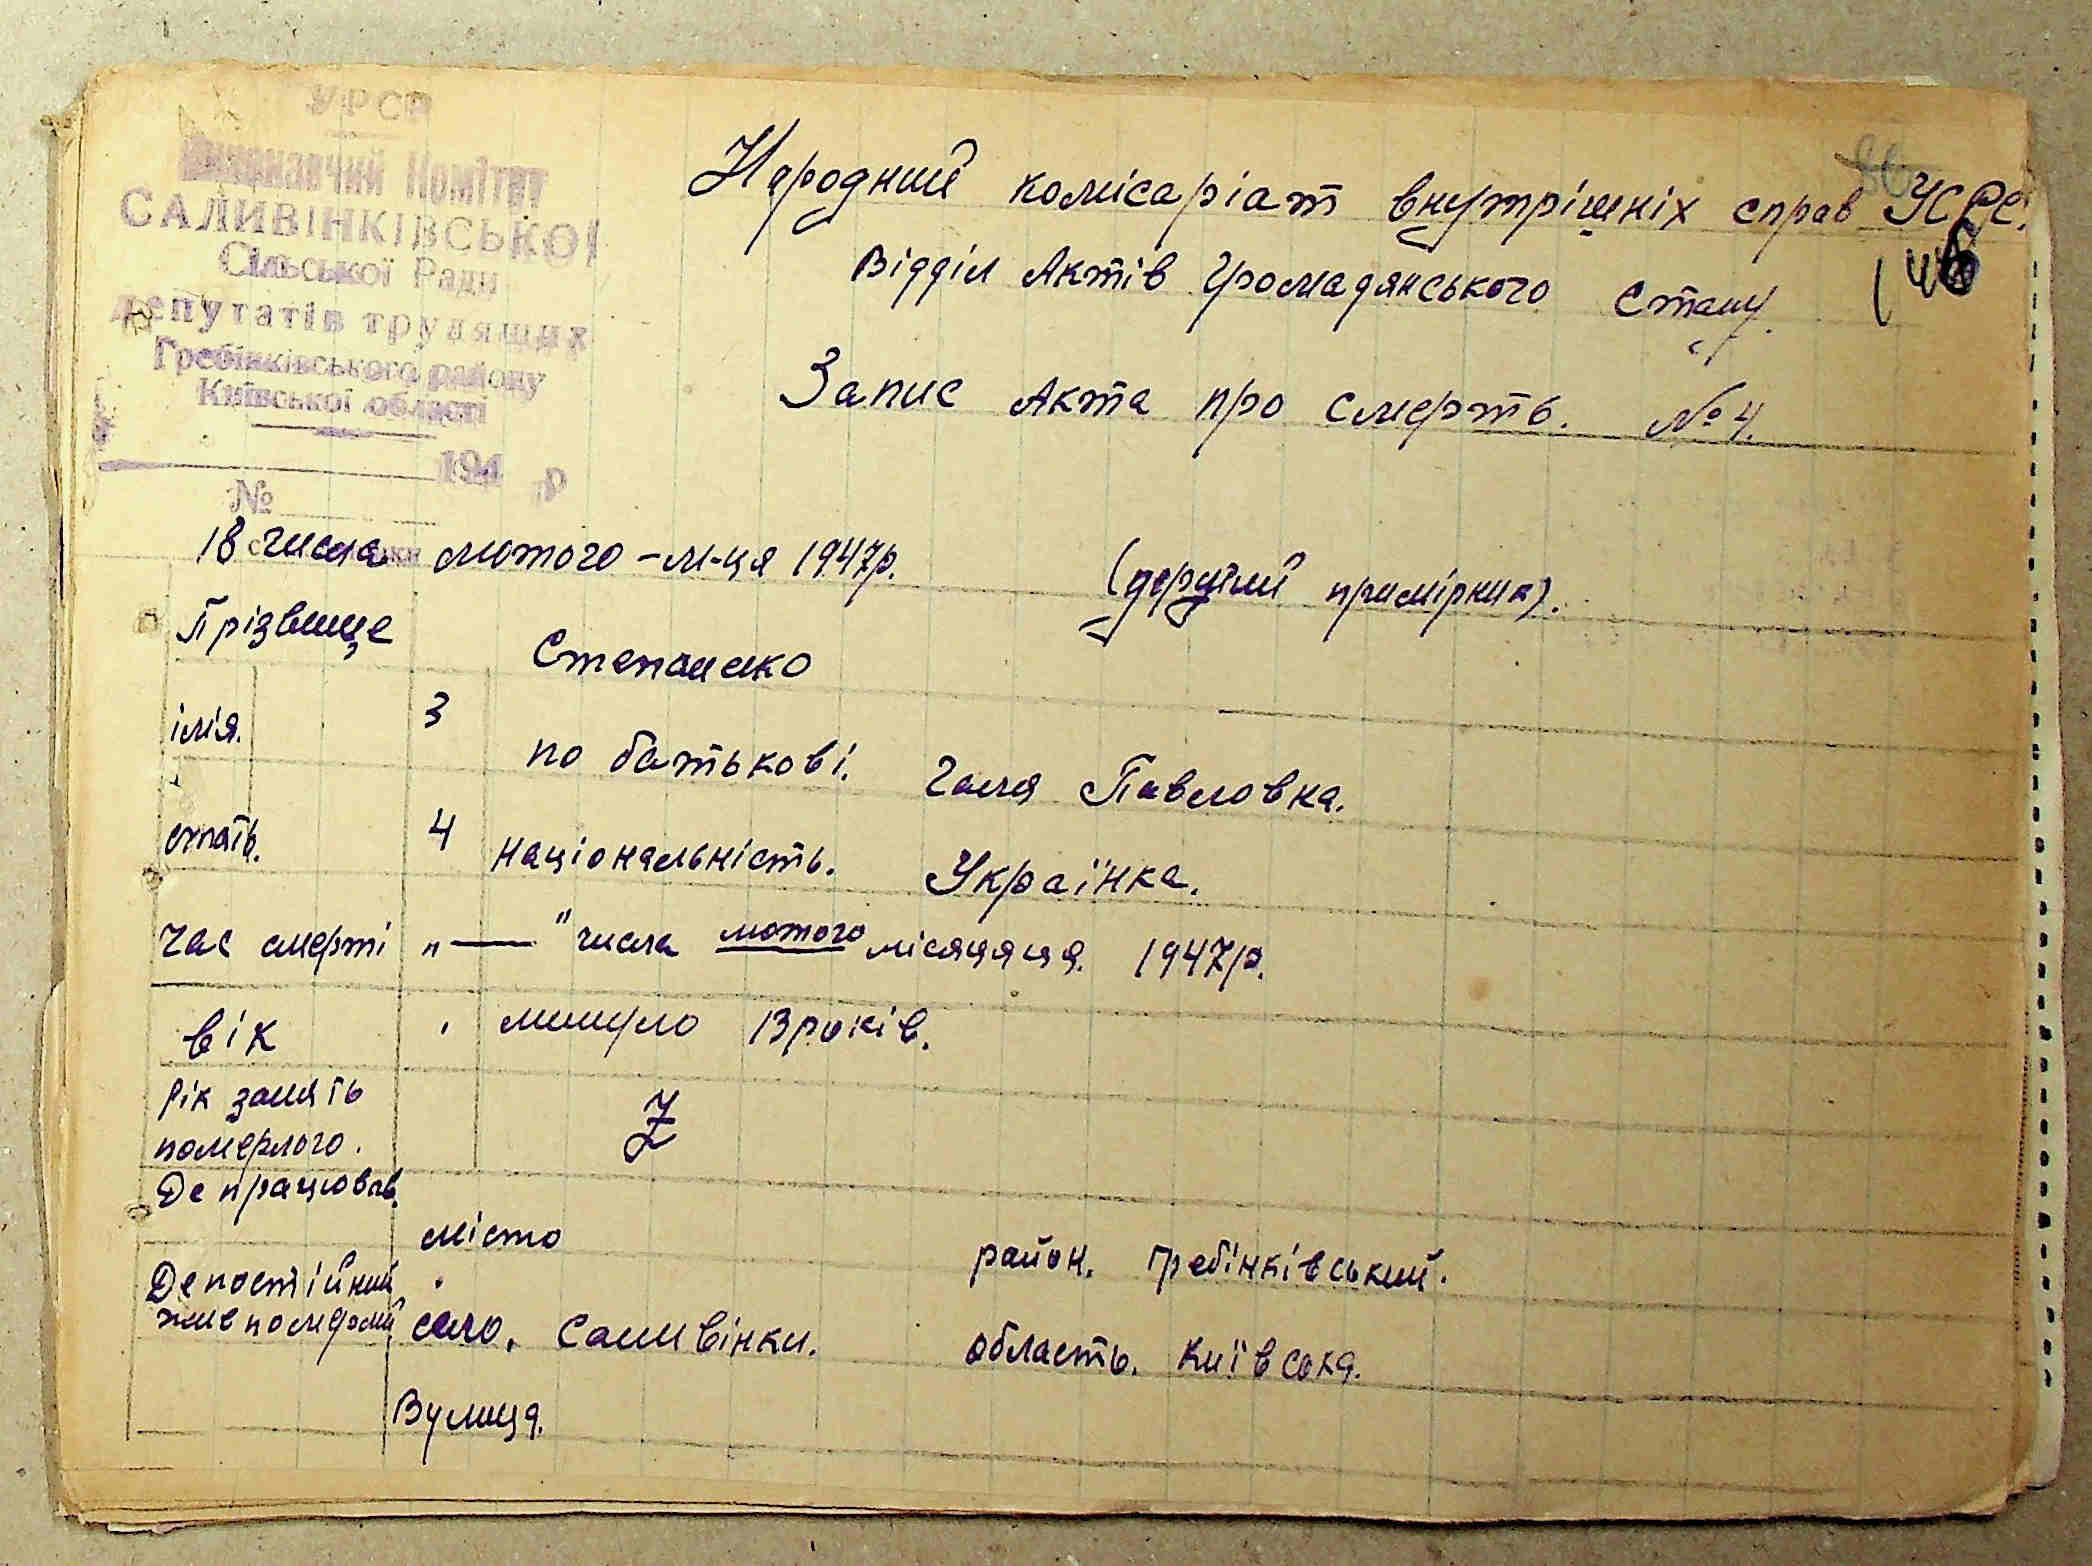 УРСР
Виконавчий Комітет
САЛИВІНКІВСЬКОЇ
Сільської Ради
депутатів трудящих
Гребінківського району
Київської області
194 р
№
Народний комісаріат внутрішніх справ УСРС.
146
Відділ Актів Громадянського Стану.
Запис Акта про смерть. № 4.
18 числа лютого - м-ця 1947р.
(другий примірник).
Прізвище Степаненко
імя. 3 по батькові. Галя Павловна.
стать. 4 Національність. Українка.
Час смерті „ — " числа лютого місяцяця. 1947р.
вік минуло 13 років.
Рік занять
померлого.
Де працював.
місто район. Гребінківський.
Де постійний
жив померлий село. Саливінки. область. Київська.
Вулиця.